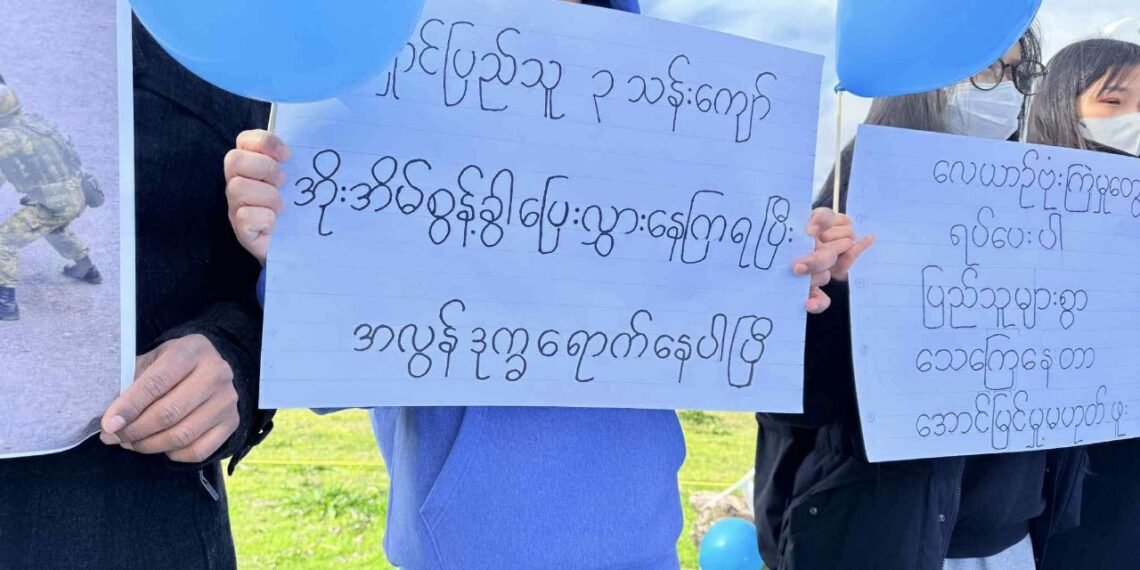 ရှိုင်ပြည်သူ ၃ သန်းကျော်
အိုးအိမ်စွန့်ခွါ ပြေးလွှားနေကြရပြီး
အလွန် ဒုက္ခရောက်နေပါပြီ
လေယာဉ်ဗုံးကြဲမှုတွေ
ရပ်ပေးပါ
ပြည်သူများစွာ
သေကြေနေတာ
အောင်မြင်မှုမဟုတ်ဖူး